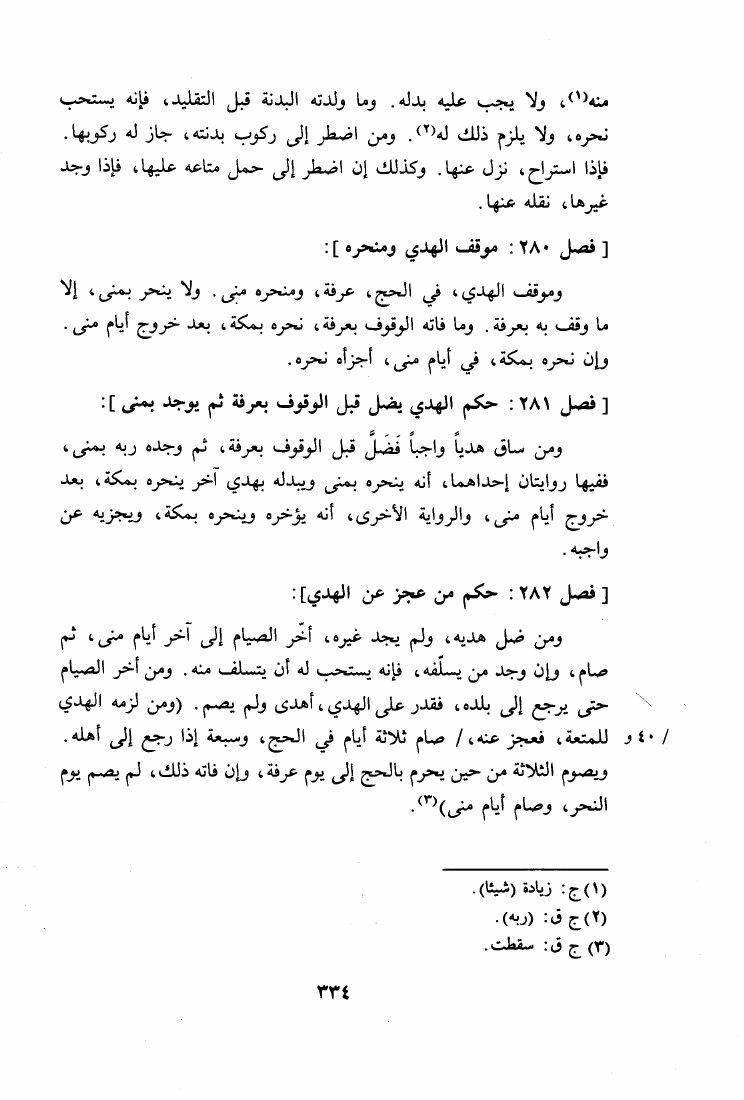 منه(١)، ولا يجب عليه بدله. وما ولدته البدنة قبل التقليد، فإنه يستحب
نحره، ولا يلزم ذلك له(٢). ومن اضطر إلى ركوب بدنته، جاز له ركوبها.
فإذا استراح، نزل عنها. وكذلك إن اضطر إلى حمل متاعه عليها، فإذا وجد
غيرها، نقله عنها.
[ فصل ٢٨٠ : موقف الهدي ومنحره ]:
وموقف الهدي، في الحج، عرفة، ومنحره منى. ولا ينحر بمنى، إلا
ما وقف به بعرفة. وما فاته الوقوف بعرفة، نحره بمكة، بعد خروج أيام منى.
وإن نحره بمكة، في أيام منى، أجزأه نحره.
[ فصل ٢٨١ : حكم الهدي يضل قبل الوقوف بعرفة ثم يوجد بمنى ]:
ومن ساق هدياً واجباً فَضَلَّ قبل الوقوف بعرفة، ثم وجده ربه بمنى،
ففيها روايتان إحداهما، أنه ينحره بمنى ويبدله بهدي آخر ينحره بمكة، بعد
خروج أيام منى، والرواية الأخرى، أنه يؤخره وينحره بمكة، ويجزيه عن
واجبه.
[ فصل ٢٨٢ : حكم من عجز عن الهدي]:
ومن ضل هديه، ولم يجد غيره، أخّر الصيام إلى آخر أيام منى، ثم
صام، وإن وجد من يسلّفه، فإنه يستحب له أن يتسلف منه. ومن أخر الصيام
حتى يرجع إلى بلده، فقدر على الهدي، أهدى ولم يصم. (ومن لزمه الهدي
/ ٤٠ و للمتعة، فعجز عنه، / صام ثلاثة أيام في الحج، وسبعة إذا رجع إلى أهله.
ويصوم الثلاثة من حين يحرم بالحج إلى يوم عرفة، وإن فاته ذلك، لم يصم يوم
النحر، وصام أيام منى)(٣).
(١) ج: زيادة (شيئا).
(٢) ج ق: (ربه).
(٣) ج ق: سقطت.
٣٣٤